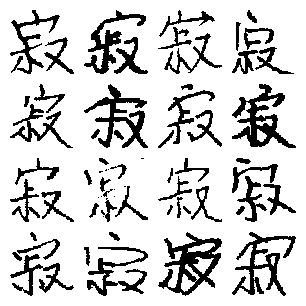 寂寂寂寂
寂寂寂寂
寂寂寂寂
寂寂寂寂